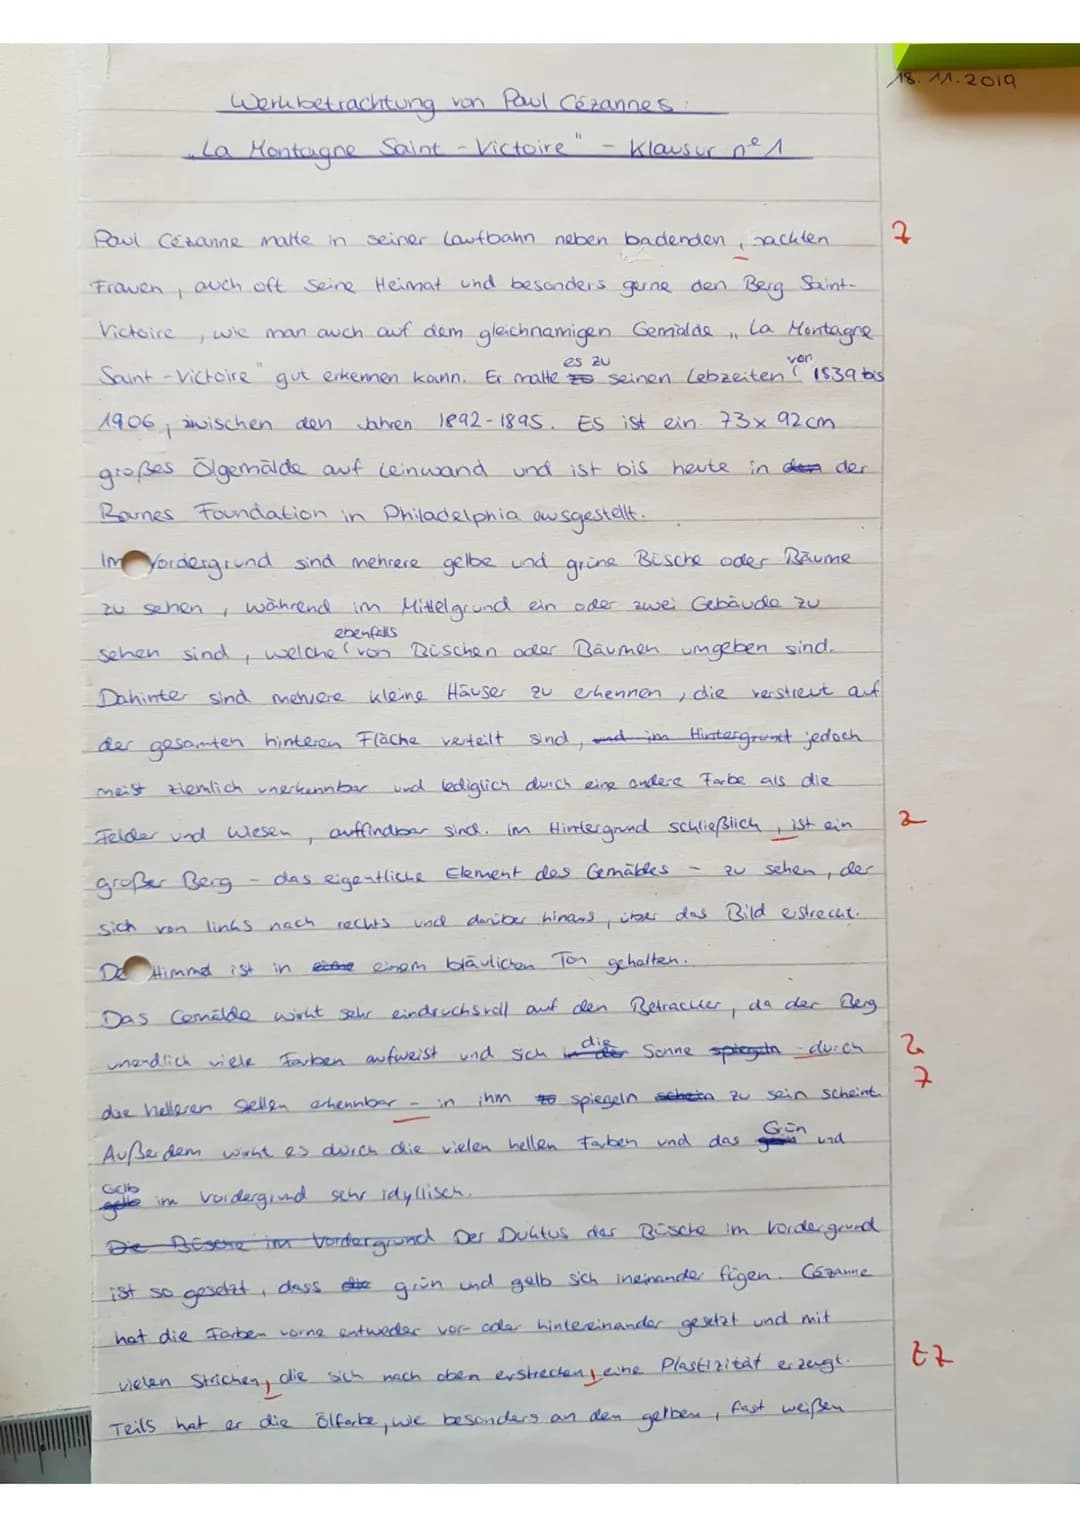 18.11.2019
Werkbetrachtung von Paul Cézannes:
„La Montagne Saint-Victoire" - Klausur nº1
Paul Cézanne malte in seiner Laufbahn neben badenden, nackten
Z
Frauen, auch oft seine Heimat und besonders gerne den Berg Saint-
Victoire, wie man auch auf dem gleichnamigen Gemälde „La Montagne
Saint-Victoire" gut erkennen kann. Er malte es zu seinen Lebzeiten von 1839 bis
1906, zwischen den Jahren 1892-1895. Es ist ein 73x92cm
großes Ölgemälde auf Leinwand und ist bis heute in der
Barnes Foundation in Philadelphia ausgestellt.
Im Vordergrund sind mehrere gelbe und grüne Büsche oder Bäume
zu sehen, während im Mittelgrund ein oder zwei Gebäude zu
sehen sind, welche ebenfalls von Büschen oder Bäumen umgeben sind.
Dahinter sind mehrere kleine Häuser zu erkennen, die verstreut auf
der gesamten hinteren Fläche verteilt sind, und im Hintergrund jedoch
meist ziemlich unerkennbar und lediglich durch eine andere Farbe als die
Felder und Wiesen, auffindbar sind. Im Hintergrund schließlich, ist ein
Z
großer Berg - das eigentliche Element des Gemäldes - zu sehen, der
sich von links nach rechts und darüber hinaus, über das Bild erstreckt.
De Himmel ist in eine einem bläulichen Ton gehalten.
Das Gemälde wirkt sehr eindrucksvoll auf den Betrachter, da der Berg
unendlich viele Farben aufweist und sich die Sonne spiegeln - durch
die helleren Stellen erkennbar - in ihm zu spiegeln schein zu sein scheint.
Z
Außerdem wirkt es durch die vielen hellen Farben und das Grün und
Gelb im Vordergrund sehr idyllisch.
Die Büsche im Vordergrund Der Duktus der Büsche im Vordergrund
ist so gesetzt, dass die grün und gelb sich ineinander fügen. Cézanne
hat die Farben vorne entweder vor- oder hintereinander gesetzt und mit
vielen Strichen, die sich nach oben erstrecken, eine Plastizität erzeugt.
tZ
Teils hat er die Ölfarbe, wie besonders an den gelben, fast weißen